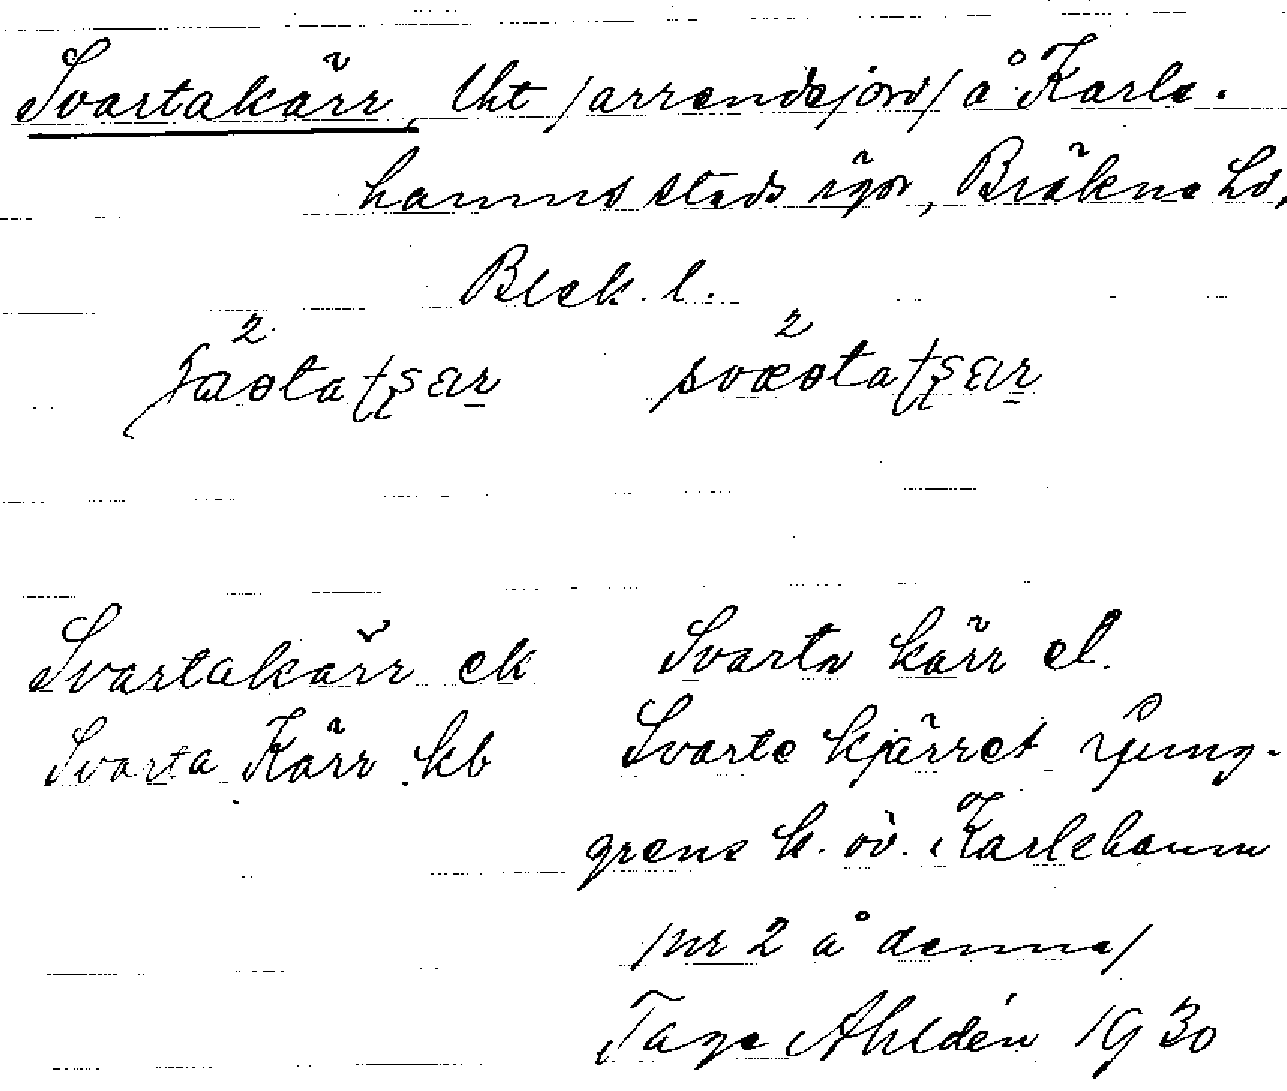 Svartakärr, lht /arrendejord/ å Karls-
hamns stads ägor, Bräkne hd,
Blek. l.
Svartakärr ek
Svarta Kärr kb
Svarta kärr el.
Svarte kjärret Ljung-
grens k. öv. Karlshamn
/nr 2 å denna/
Tage Ahldén 1930